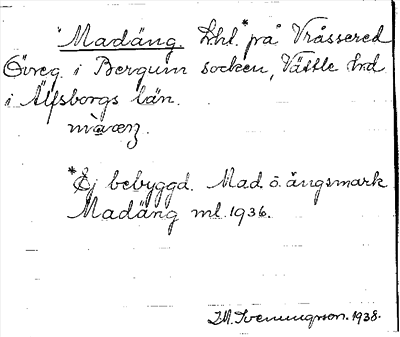 Madäng. Lht.* på Vråssered
Övreg. i Bergum socken, Vättle hrd
i Älfsborgs län.
*Ej bebyggd. Mad. o. ängsmark
Madäng ml. 1936.
I.M. Svenningson. 1938.